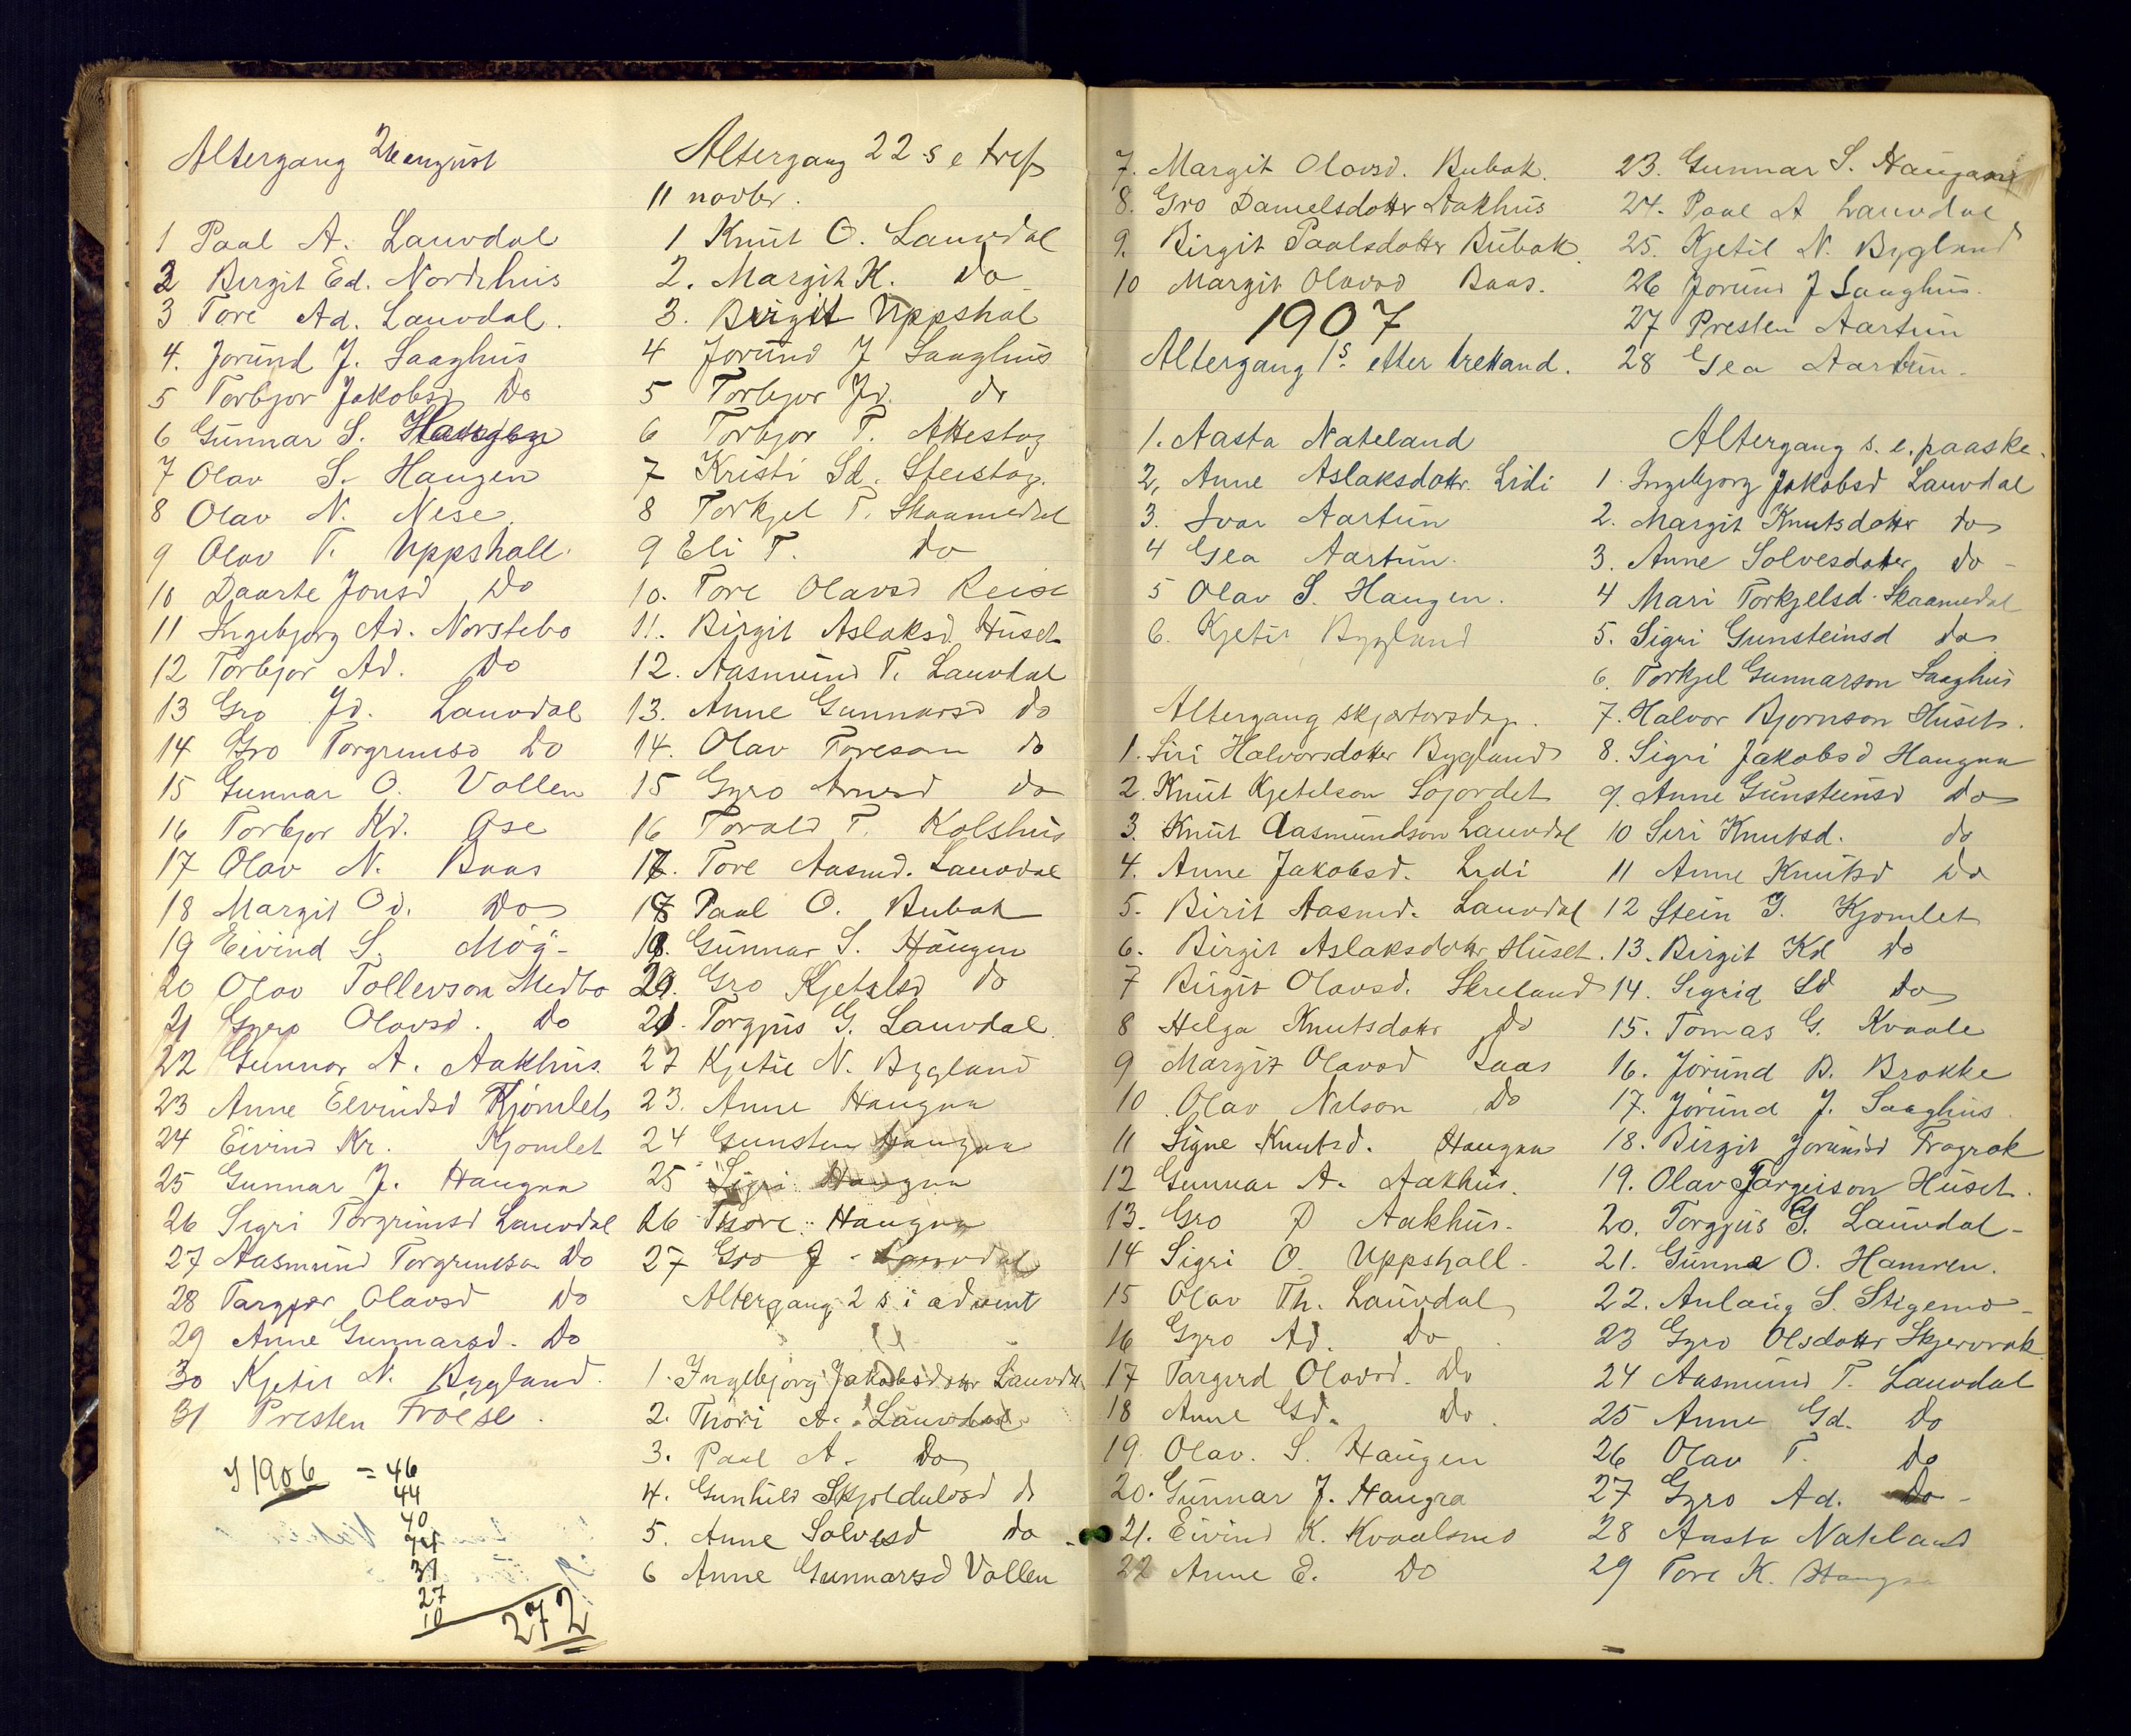 Altergang 26 august
1 Paal A. Lauvdal
2 Birgit Ed. Nordehuis
3 Tore Ad. Lauvdal.
4. Jorund J. Saaghus
5 Torbjor Jakobsd Do
6 Gunnar S. Haugen
7 Olav S. Haugen
8 Olav N. Nese
9 Olav T. Uppshall.
10 Daarte Jonsd Do
11 Ingebjorg Ad. Norstebo
12 Torbjor Ad. Do
13 Gro Jd. Lauvdal
14 Gro Torgrimsd Do
15 Gunnar O. Vollen
16 Torbjor Kd. Ose
17 Olav N. Baas
18 Margit Od. Do
19 Eivind S. Mög-
20 Olav Tollevson Medbo
21 Gyro Olavsd. Do
22 Gunnar A. Aakhus.
23 Anne Eivindsd Kjomlet
24 Eivind Kr. Kjomlet
25 Gunnar J. Haugaa
26 Sigri Torgrimsd Lauvdal
27 Aasmund Torgrimson Do
28 Targjer Olavsd Do
29 Anne Gunnarsd. Do
30 Kjetil N. Bygland.
31 Presten Froise.
I 1906 = 46
44
40
74
31
27
10
272
Altergang 22 s e tref
11 novbr.
1 Knut O. Lauvdal
2. Margit K. Do
3. Birgit Uppshal
4 Jorund J Saaghus
5 Torbjor Jd. do
6 Torbjor T. Attestog
7 Kristi Sd. Steistog.
8 Torkjel T. Skaamedal
9 Eli T. Do
10. Tore Olavsd Reise
11. Birgit Aslaksd Huset
12. Aasmund T. Lauvdal
13. Anne Gunnarsd do
14. Olav Toreson do
15 Gyro Arnesd do
16 Torald T. Kolshus
17. Tore Aasmd. Lauvdal
18 Paal O. Bubak
19. Gunnar S. Haugen
20. Gro Kjetilsd do
21. Torgjus G. Lauvdal.
22 Kjetil N. Bygland
23. Anne Haugaa
24 Gunstein Haugaa
25 Sigri Haugaa
26 Thore Haugaa
27 Gro J. Lauvdal
Altergang 2 s i advent
1. Ingebjorg Jakobsdotter Lauvdal
2. Thori A. Lauvdal
3. Paal A. Do
4. Gunhild Skjoldulvsd do
5. Anne Solvesd do
6 Anne Gunnarsd Vollen
7. Margit Olavsd. Bubak.
8. Gro Danielsdotter Aakhus
9. Birgit Paalsdotter Bubak.
10 Margit Olavsd Baas.
1907
Altergang 1s. etter trettand.
1. Aasta Nateland
2, Anne Aslaksdottr. Lidi
3. Ivar Aartun
4 Gea Aartun.
5 Olav S. Haugen.
6. Kjetil Bygland
Altergang skjærtorsdag.
1. Siri Halvorsdotter Bygland
2. Knut Kjetelson Sojordet
3. Knut Aasmundson Lauvdal
4. Anne Jakobsd. Lidi
5. Birit Aasmd. Lauvdal
6. Birgit Aslaksdottr Huset.
7 Birgit Olavsd. Skreland
8 Helga Knutsdottr Do
9 Margit Olavsd Baas
10 Olav Nilson Do
11 Signe Knutsd. Haugaa
12 Gunnar A. Aakhus.
13. Gro D Aakhus.
14 Sigri O. Uppshall.
15 Olav Th. Lauvdal
16 Gyro Ad. Do
17 Targerd Olavsd. Do
18 Anne Gd. Do.
19. Olav. S. Haugen
20. Gunnar J. Haugaa
21. Eivind K. Kvaalsmo
22 Anne E. Do
23. Gunnar S. Haugaa
24. Paal A Lauvdal
25. Kjetil N. Bygland
26 Jorund J Saaghus.
27 Presten Aartun
28 Gea Aartun.
Altergang s. e. paaske.
1. Ingebjorg Jakobsd Lauvdal
2. Margit Knutsdotter do
3. Anne Solvesdotter do
4 Mari Torkjelsd. Skaamedal
5. Sigri Gunsteinsd do
6. Torkjel Gunnarson Saaghus
7. Halvor Bjornson Huset.
8. Sigri Jakobsd Haugaa
9. Anne Gunsteinsd do
10 Siri Knutsd. do
11 Anne Knutsd Do
12 Stein G. Kjomlet
13. Birgit Kd do
14. Sigrid Sd do
15. Tomas G. Kvaale
16. Jorund B. Brokke
17. Jorund J. Saaghus.
18. Birgit Jorundsd Frograk
19. Olav Targeison Huset.
20. Torgjus G. Lauvdal-
21. Gunne O. Hamren.
22. Anlaug S. Stigemo-
23 Gyro Olsdottr Skjervrak
24 Aasmund T. Lauvdal
25 Anne Gd. Do
26 Olav T. do
27 Gyro Ad. Do-
28 Aasta Nateland
29 Tore K. Haugaa